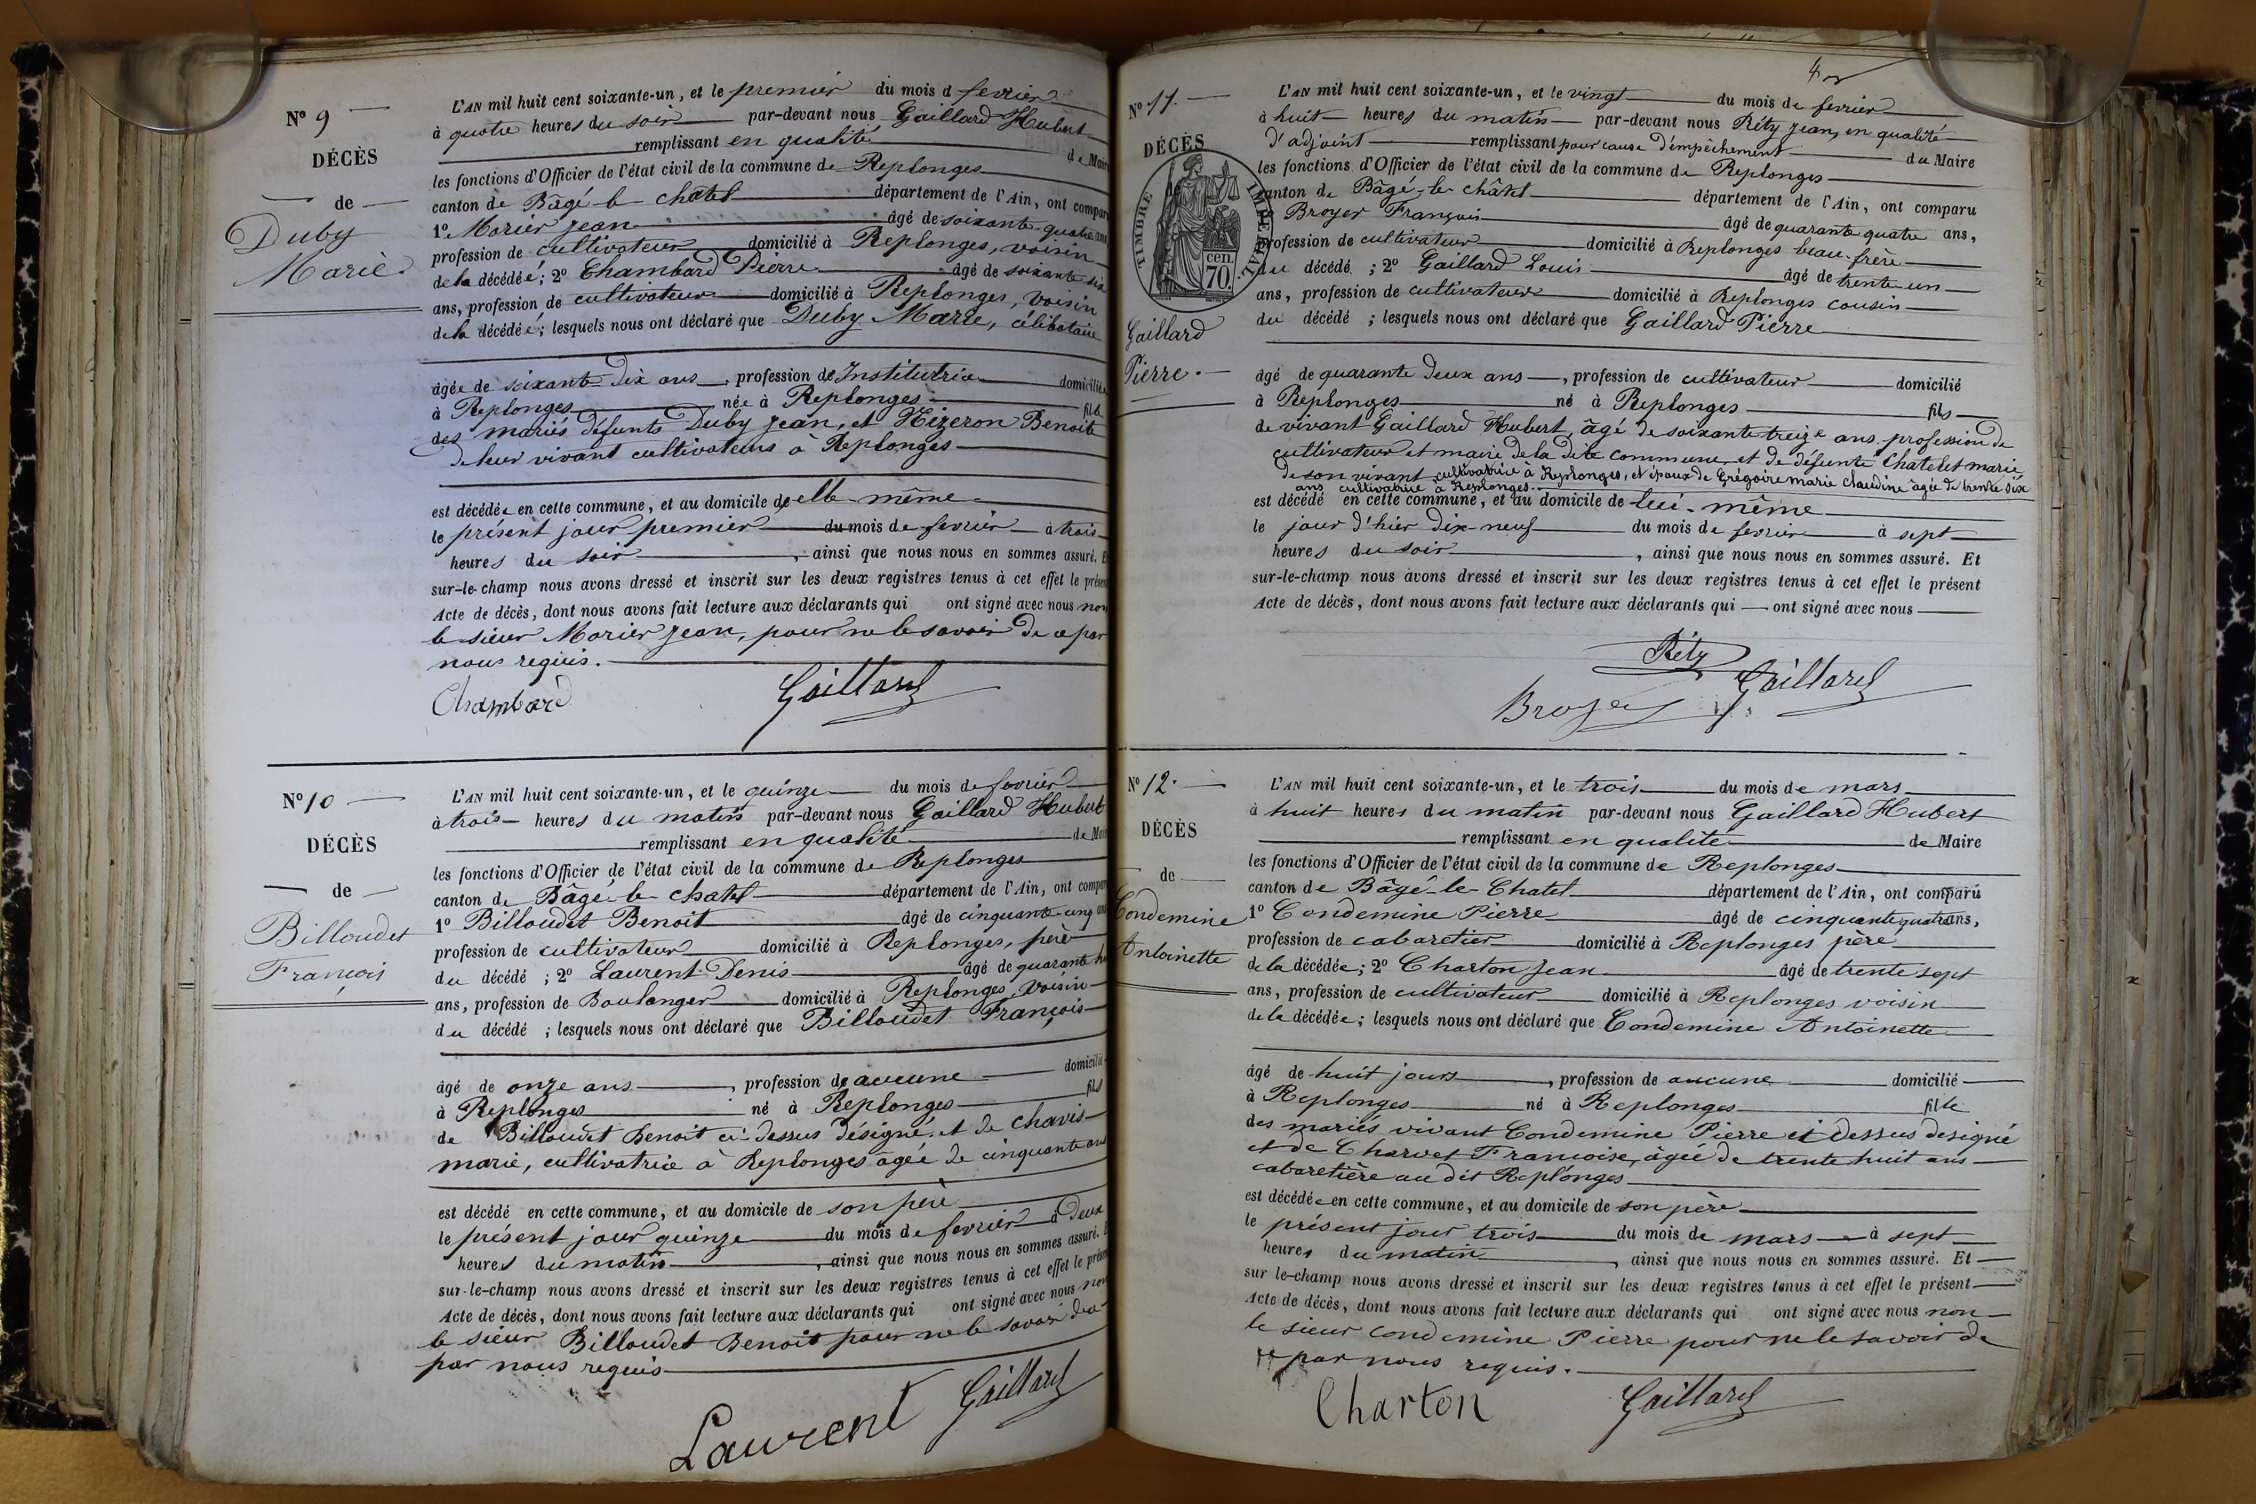 Nº 9
DÉCÈS
de
Duby
Marie
L'AN mil huit cent soixante-un, et le premier du mois d fevrier
à quatre heures du soir par-devant nous Gaillard Hubert
remplissant en qualité de Maire
les fonctions d'Officier de l'état civil de la commune de Replonges
canton de Bâgé le chatel département de l'Ain, ont comparu
1º Morier Jean âgé de soixante quatre ans
profession de cultivateur domicilié à Replonges, voisin
de la décédée; 2º Chambard Pierre âgé de soixante six
ans, profession de cultivateur domicilié à Replonges, voisin
de la décédée; lesquels nous ont déclaré que Duby Marie, célibataire
âgée de soixante dix ans, profession de Institutrice domiciliée
à Replonges née à Replonges fille
des mariés défunts Duby Jean, et Nizeron Benoite
de leur vivant cultivateurs à Replonges
est décédée en cette commune, et au domicile de elle même
le présent jour premier du mois de fevrier à trois
heures du soir, ainsi que nous nous en sommes assuré. Et
sur-le-champ nous avons dressé et inscrit sur les deux registres tenus à cet effet le présent
Acte de décès, dont nous avons fait lecture aux déclarants qui ont signé avec nous non
le sieur Morier Jean, pour ne le savoir de ce par
nous requis.
Chambard Gaillard
Nº 10
DÉCÈS
de
Billoudet
François
L'AN mil huit cent soixante-un, et le quinze du mois de fevrier
à trois heures du matin par-devant nous Gaillard Hubert
remplissant en qualité de Maire
les fonctions d'Officier de l'état civil de la commune de Replonges
canton de Bâgé le chatel département de l'Ain, ont comparu
1º Billoudet Benoit âgé de cinquante cinq ans
profession de cultivateur domicilié à Replonges, père
du décédé; 2º Laurent Denis âgé de quarante
ans, profession de Boulanger domicilié à Replonges, voisin
du décédé; lesquels nous ont déclaré que Billoudet François
âgé de onze ans, profession de aucune domicilié
à Replonges né à Replonges fils
de Billoudet Benoit ci-dessus désigné, et de Chavis
marie, cultivatrice à Replonges âgée de cinquante ans
est décédé en cette commune, et au domicile de son père
le présent jour quinze du mois de fevrier à deux
heures du matin, ainsi que nous nous en sommes assuré. Et
sur-le-champ nous avons dressé et inscrit sur les deux registres tenus à cet effet le présent
Acte de décès, dont nous avons fait lecture aux déclarants qui ont signé avec nous non
le sieur Billoudet Benoit pour ne le savoir de ce
par nous requis
Laurent Gaillard
4
Nº 11.
DÉCÈS
TIMBRE IMPÉRIAL
cen.
70.
Gaillard
Pierre.
L'AN mil huit cent soixante-un, et le vingt du mois de fevrier
à huit heures du matin par-devant nous Réty Jean, en qualité
d'adjoint remplissant pour cause d'empêchement du Maire
les fonctions d'Officier de l'état civil de la commune de Replonges
canton de Bâgé-le-châtel département de l'Ain, ont comparu
Broyer François âgé de quarante quatre ans,
profession de cultivateur domicilié à Replonges beau-frère
du décédé; 2º Gaillard Louis âgé de trente-un
ans, profession de cultivateur domicilié à Replonges cousin
du décédé; lesquels nous ont déclaré que Gaillard Pierre
âgé de quarante deux ans, profession de cultivateur domicilié
à Replonges né à Replonges fils
de vivant Gaillard Hubert, âgé de soixante treize ans profession de
cultivateur et maire de la dite commune, et de défunte Chatelet marie
de son vivant cultivatrice à Replonges, et époux de Grégoire marie Claudine âgée de trente six
ans cultivatrice à Replonges.
est décédé en cette commune, et au domicile de lui-même
le jour d'hier dix-neuf du mois de fevrier à sept
heures du soir, ainsi que nous nous en sommes assuré. Et
sur-le-champ nous avons dressé et inscrit sur les deux registres tenus à cet effet le présent
Acte de décès, dont nous avons fait lecture aux déclarants qui ont signé avec nous
Réty
Broyer Gaillard
Nº 12.
DÉCÈS
de
Condemine
Antoinette
L'AN mil huit cent soixante-un, et le trois du mois de mars
à huit heures du matin par-devant nous Gaillard Hubert
remplissant en qualité de Maire
les fonctions d'Officier de l'état civil de la commune de Replonges
canton de Bâgé-le-Chatel département de l'Ain, ont comparu
1º Condemine Pierre âgé de cinquante quatre ans,
profession de cabaretier domicilié à Replonges père
de la décédée; 2º Charton Jean âgé de trente sept
ans, profession de cultivateur domicilié à Replonges voisin
de la décédée; lesquels nous ont déclaré que Condemine Antoinette
âgé de huit jours, profession de aucune domicilié
à Replonges né à Replonges fille
des mariés vivant Condemine Pierre ci dessus designé
et de Charvet Francoise, âgée de trente huit ans
cabaretière au dit Replonges
est décédée en cette commune, et au domicile de son père
le présent jour trois du mois de mars à sept
heures du matin, ainsi que nous nous en sommes assuré. Et
sur le-champ nous avons dressé et inscrit sur les deux registres tenus à cet effet le présent
Acte de décès, dont nous avons fait lecture aux déclarants qui ont signé avec nous non
le sieur Condemine Pierre pour ne le savoir de
ce par nous requis.
Charton Gaillard